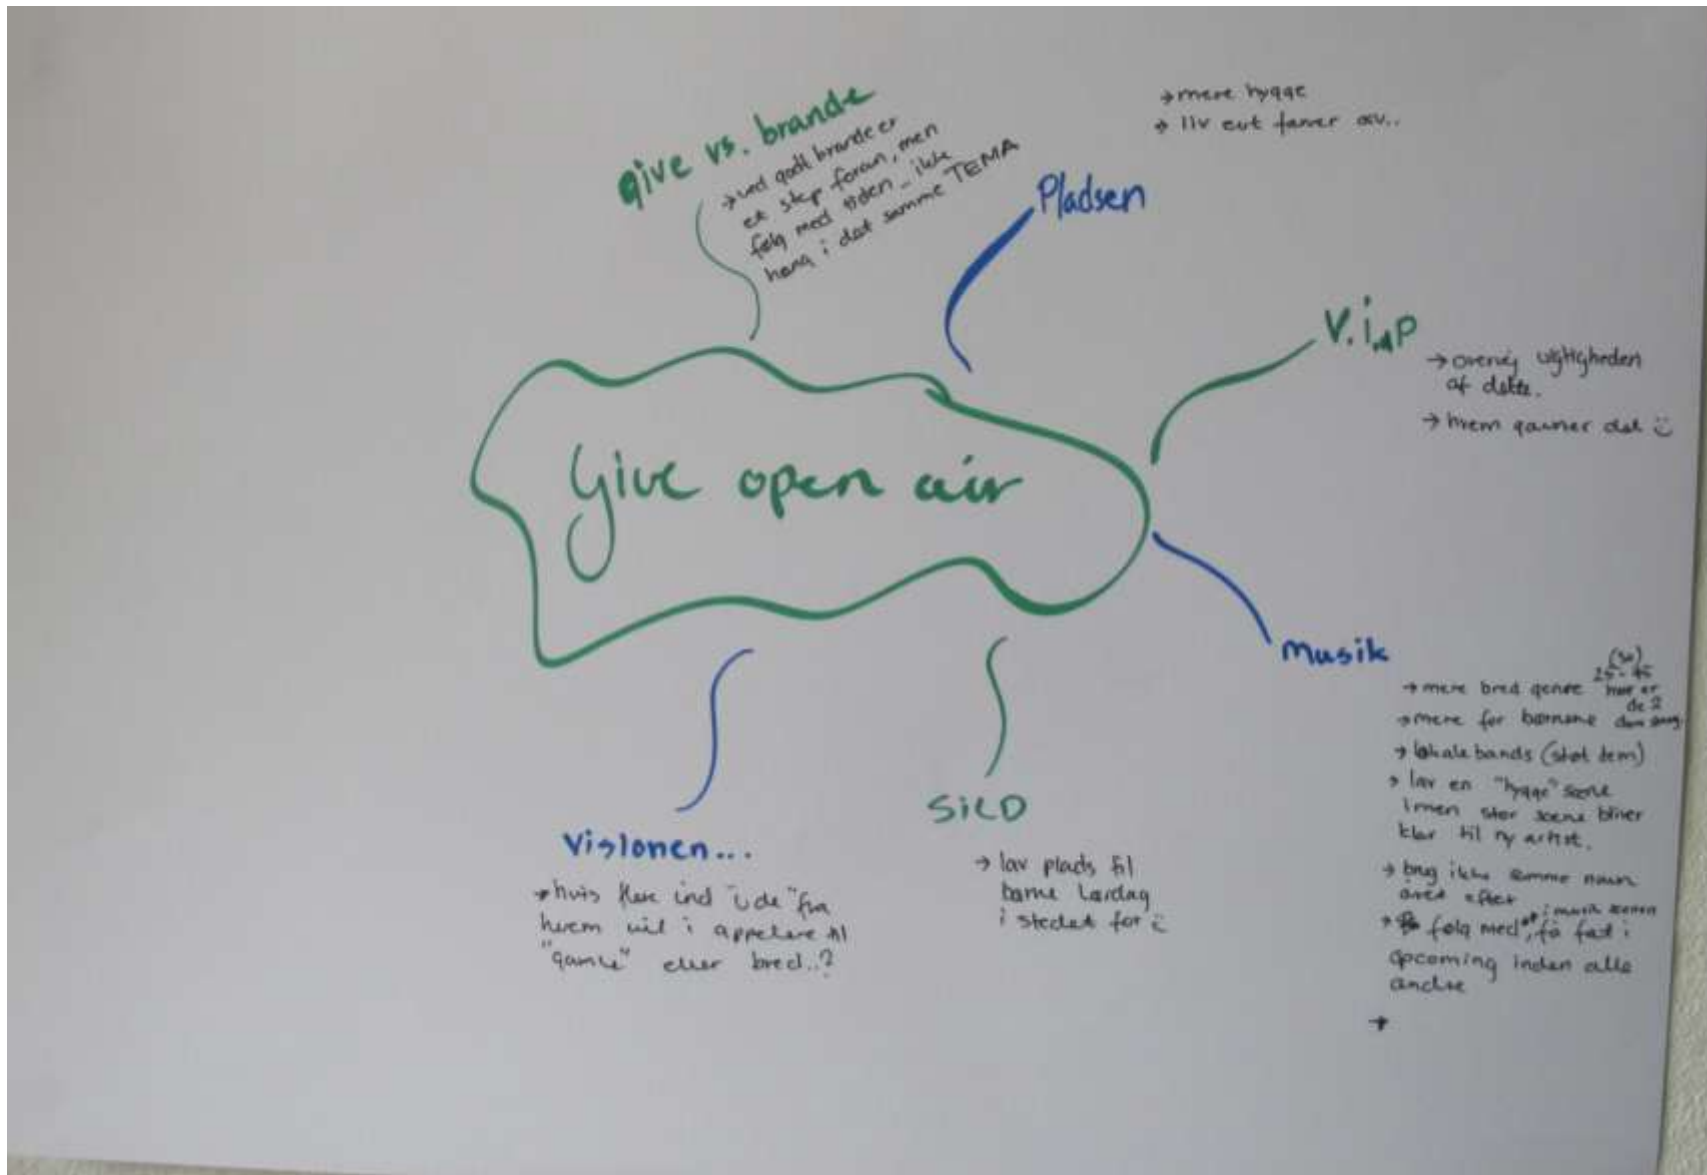 give vs. brande
→ ved godt brande er
et step foran, men
følg med tiden _ ikke
hæng i det samme TEMA
→ mere hygge
→ liv evt farver
Pladsen
V.i.P
→ overvej vigtigheden
af dette.
→ hvem gavner det ü
Give open air
Musik
(50)
25-45
→ mere bred genre hvor er
de ?
→ mere for børnene
→ lokale bands (støt dem)
→ lav en "hygge" scene
imen stor scene bliver
klar til ny artist.
→ brug ikke samme navn
året efter
→ følg med i musik scenen, få fat i
upcoming inden alle
andre
→
SILD
→ lav plads til
børne Lørdag
i stedet for ü
Visionen...
→ hvis flere ind "ude" fra
hvem vil i appelere til
"gamle" eller bred..?